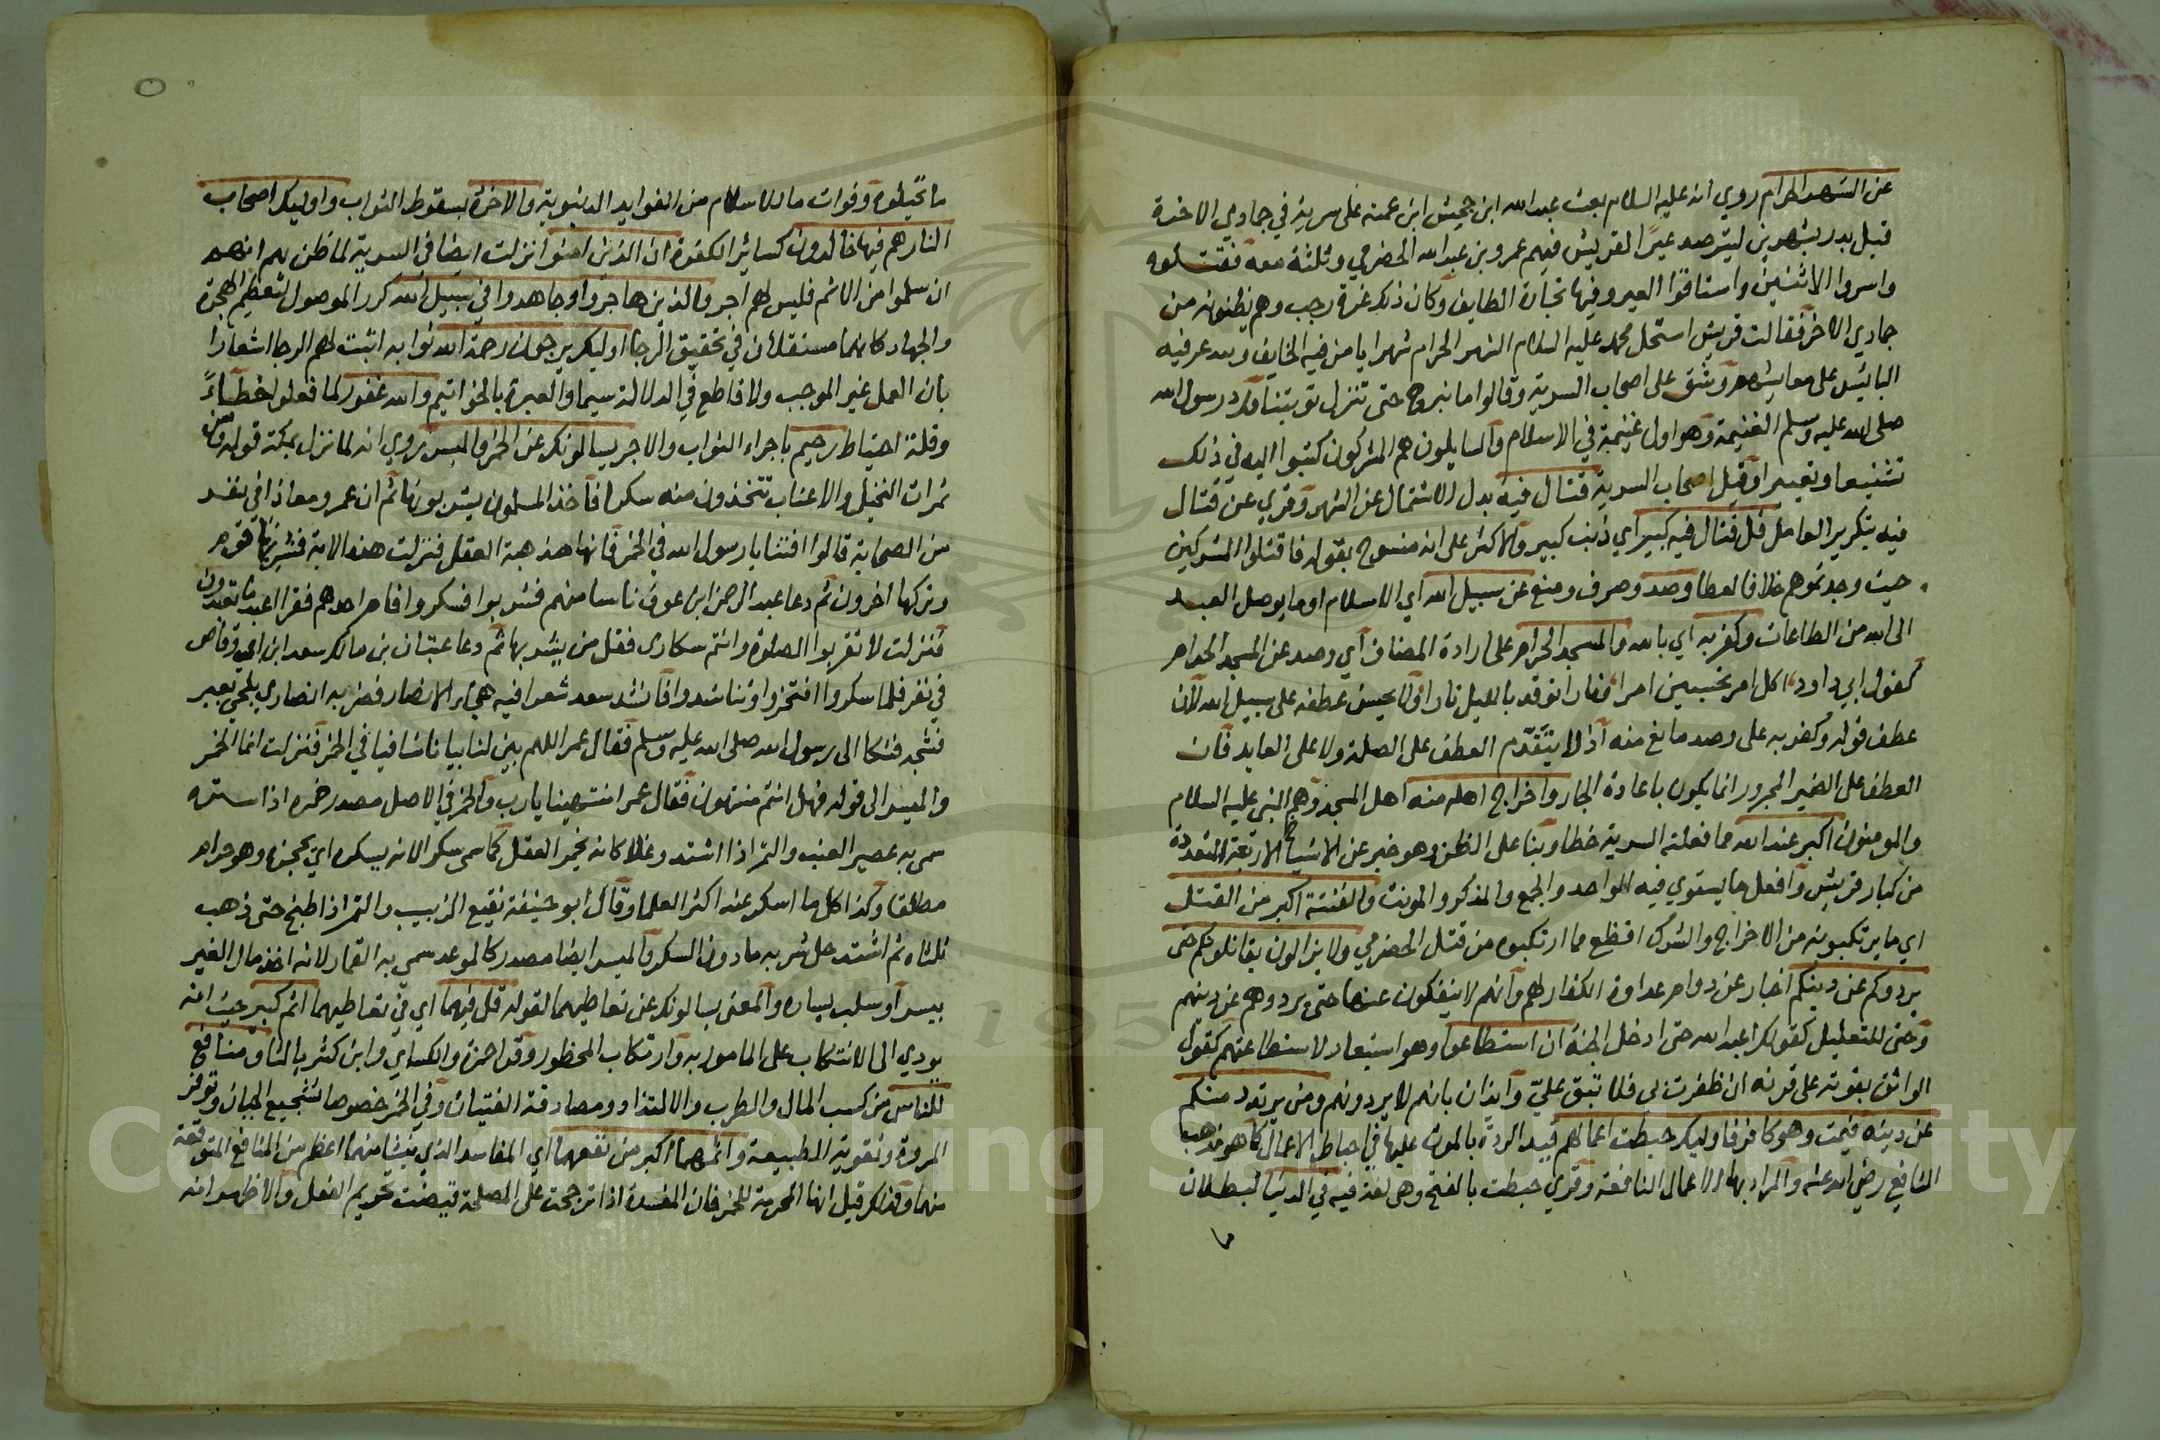 عن الشهر الحرام روي انه عليه السلام بعث عبد الله ابن جحش ابن عمته على سرية في جمادي الاخرة
قبل بدر بشهرين ليترصد عيرا لقريش فيهم عمرو بن عبد الله الحضرمي وثلثة معه فقتلوه
واسروا الاثنين واستاقوا العير وفيها تجارة الطايف وكان ذلك غرة رجب وهم يظنونه من
جمادي الاخر فقالت قريش استحل محمد عليه السلام الشهر الحرام شهرا يامن فيه الخايف ويبذعر فيه
الناس على معايشهم وشق على اصحاب السرية وقالوا ما نبروح حتى تنزل توبتنا ورد رسول الله
صلى الله عليه وسلم الغنيمة وهو اول غنيمة في الاسلام والسايلون هم المشركون كتبوا اليه في ذلك
تشنيعا وتعييرا وقيل اصحاب السرية قتال فيه بدل الاشتمال عن الشهر وقري عن قتال
فيه بتكرير العامل قل قتال فيه كبير اي ذنب كبير والاكثر على انه منسوخ بقوله فاقتلوا المشركين
حيث وجدتموهم خلافا لعطا وصد وصرف ومنع عن سبيل الله اي الاسلام او ما يوصل العبد
الى الله من الطاعات وكفر به اي بالله والمسجد الحرام على ارادة المضاف اي وصد عن المسجد الحرام
كقول ابي داود اكل امر تحسبين امرا ونار توقد بالليل نارا ولا يحسن عطفه على سبيل الله لان
عطف قوله وكفر به على وصد مانع منه اذ لا يتقدم العطف على الصلة ولا على العايد فان
العطف على الضمير المجرور انما يكون باعادة الجار واخراج اهله منه اهل المسجد وهم النبي عليه السلام
والمومنون اكبر عند الله مما فعلته السرية خطا وبنا على الظن وهو خبر عن الاشياء الاربعة المعدودة
من كبار قريش وافعل ما يستوي فيه الواحد والجمع والمذكر والمونث والفتنة اكبر من القتل
اي ما يرتكبونه من الاخراج والشرك افظع مما ارتكبوه من قتل الحضرمي ولا يزالون يقاتلونكم حتى
يردوكم عن دينكم اخبار عن دوام عداوة الكفار لهم وانهم لا ينفكون عنها حتى يردوهم عن دينهم
وحتى للتعليل كقولك اعبد الله حتى ادخل الجنة ان استطاعوا وهو استبعاد لاستطاعتهم كقول
الواثق بقوته على قرنه ان ظفرت بي فلا تبق علي وايذان بانهم لا يردونهم ومن يرتدد منكم
عن دينه فيمت وهو كافر فاوليك حبطت اعمالهم قيد الردة بالموت عليها في احباط الاعمال كما هو مذهب
الشافعي رضي الله عنه والمراد بها الاعمال النافعة وقري حبطت بالفتح وهي لغة فيه في الدنيا لبطلان
ما
ما تخيلوه وفوات ما للاسلام من الفوايد الدنيوية والاخرة بسقوط الثواب واوليك اصحاب
النار هم فيها خالدون كسائر الكفرة ان الذين امنوا نزلت ايضا في السرية لما ظن بهم انهم
ان سلموا من الاثم فليس لهم اجر والذين هاجروا وجاهدوا في سبيل الله كرر الموصول لتعظيم الهجرة
والجهاد كانهما مستقلان في تحقيق الرجا اوليك يرجون رحمة الله ثوابه اثبت لهم الرجا اشعارا
بان العمل غير الموجب ولا قاطع في الدلالة سيما والعبرة بالخواتيم والله غفور لما فعلوا خطاء
وقلة احتياط رحيم باجراء الثواب والاجر يسالونك عن الخمر والميسر روي انه لما نزل بمكة قوله ومن
ثمرات النخيل والاعناب تتخذون منه سكرا فاخذ المسلمون يشربونها ثم ان عمر ومعاذا في نفر
من الصحابة قالوا افتنا يا رسول الله في الخمر فانها مذهبة العقل فنزلت هذه الاية فشربها قوم
وتركها اخرون ثم دعا عبد الرحمن ابن عوف ناسا منهم فشربوا فسكروا فام احدهم فقرا اعبد ما تعبدون
فنزلت لا تقربوا الصلوة وانتم سكارى فقل من يشربها ثم دعا عتبان بن مالك سعد ابن ابي وقاص
في نفر فلما سكروا افتخروا وتناشدوا فانشد سعد شعرا فيه هجاء الانصار فضربه انصاري بلحي بعير
فشجه فشكا الى رسول الله صلى الله عليه وسلم فقال عمر اللهم بين لنا بيانا شافيا في الخمر فنزلت انما الخمر
والميسر الى قوله فهل انتم منتهون فقال عمر انتهينا يا رب والخمر في الاصل مصدر خمره اذا ستره
سمي به عصير العنب والتمر اذا اشتد وغلا كانه يخمر العقل كما سمي سكرا لانه يسكره اي يحجزه وهو حرام
مطلقا وكذا كل ما اسكر عند اكثر العلما وقال ابو حنيفة نقيع الزبيب والتمر اذا طبخ حتى ذهب
ثلثاه ثم اشتد حل شربه ما دون السكر والميسر ايضا مصدر كالموعد سمي به القمار لانه اخذ مال الغير
بيسر او سلب يساره والمعنى يسالونك عن تعاطيهما لقوله قل فيهما اي في تعاطيهما اثم كبير حيث انه
يودي الى الانتكاب على المامور به وارتكاب المحظور وقرا حمزة والكساي وابن كثير بالثا ومنافع
للناس من كسب المال والطرب والالتذاذ ومصادقة الفتيان وفي الخمر خصوصا تشجيع الجبان وتوفر
المروة وتقوية الطبيعة واثمهما اكبر من نفعهما اي المفاسد الذي ينشا منهما اعظم من المنافع المتوقعة
منهما ولذلك قيل انها المحرمة للخمر فان المفسدة اذا ترجحت على المصلحة اقتضت تحريم الفعل والاظهر انه